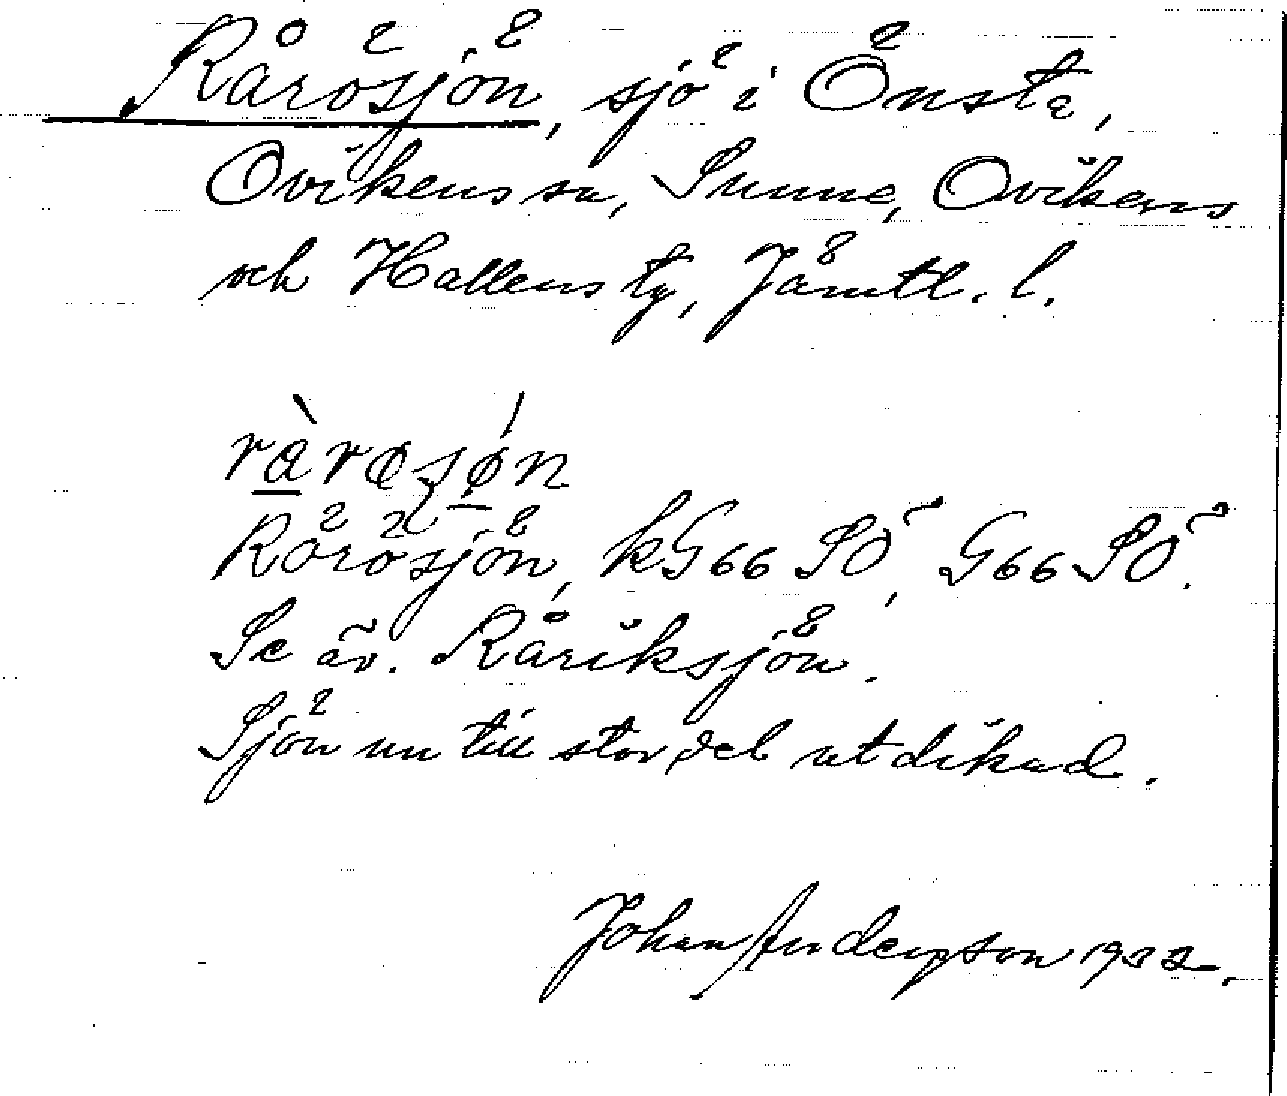 Rårösjön, sjö i Önsta,
Ovikens sn, Sunne, Ovikens
och Hallens tg, Jämtl. l.
ràrøsǿn
Rårösjön, kG66 SÖ, G66 SÖ.
Se äv. Råriksjön.
Sjön nu till stor del utdikad.
Johan Anderson 1933.